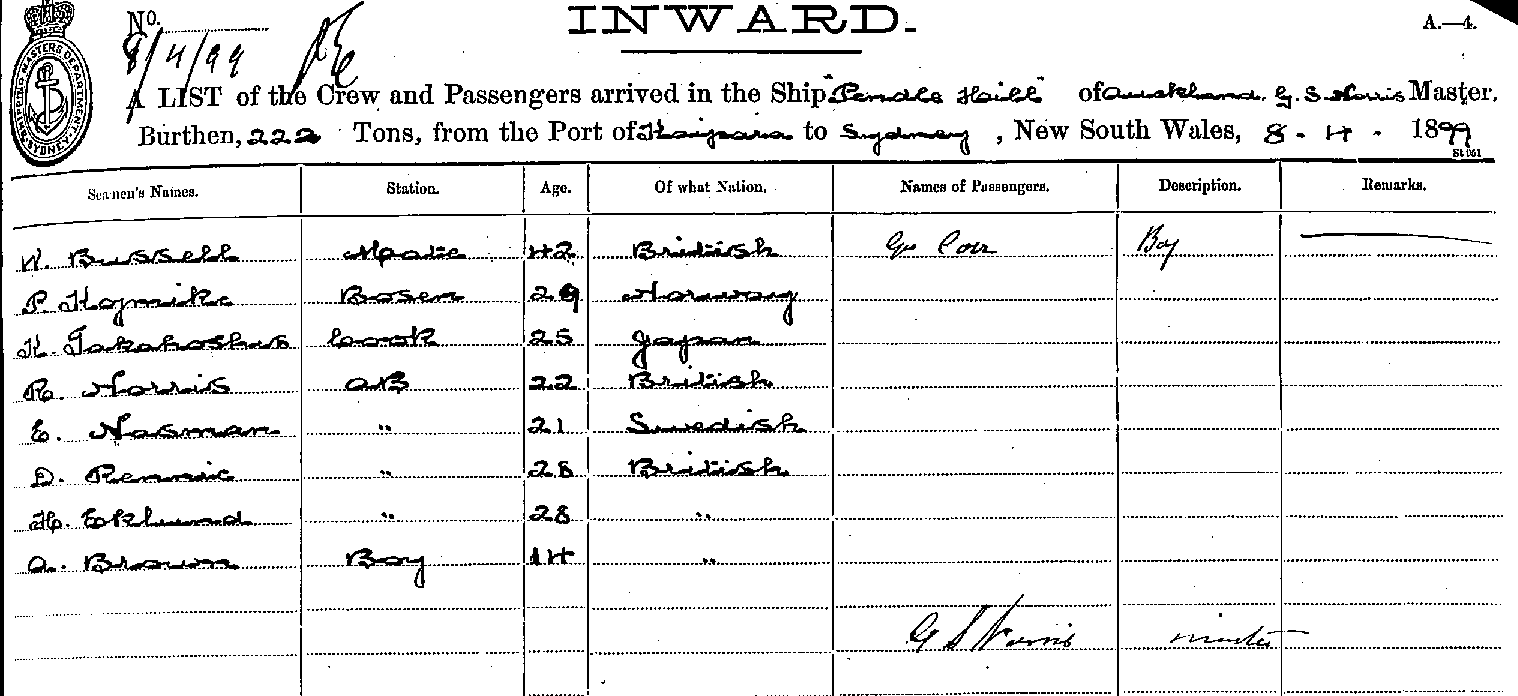 No.
INWARD.
A.—4.
8/4/99
A LIST of the Crew and Passengers arrived in the Ship "Pendle Hill" of Auckland, G. S. Norris Master,
Burthen, 222 Tons, from the Port of Kaipara to Sydney, New South Wales, 8 - 4 - 1899
St 061
Seamen's Names. Station. Age. Of what Nation. Names of Passengers. Description. Remarks.
W. Bussell Mate 42 British Geo Boy
P. Bosen 29 Norway
K. Cook 25 Japan
R. Norris AB 22 British
E. Nosman " 21 Swedish
D. Rennie " 28 British
H. Eklund " 28 "
A. Brown Boy 14 "
G S Norris master